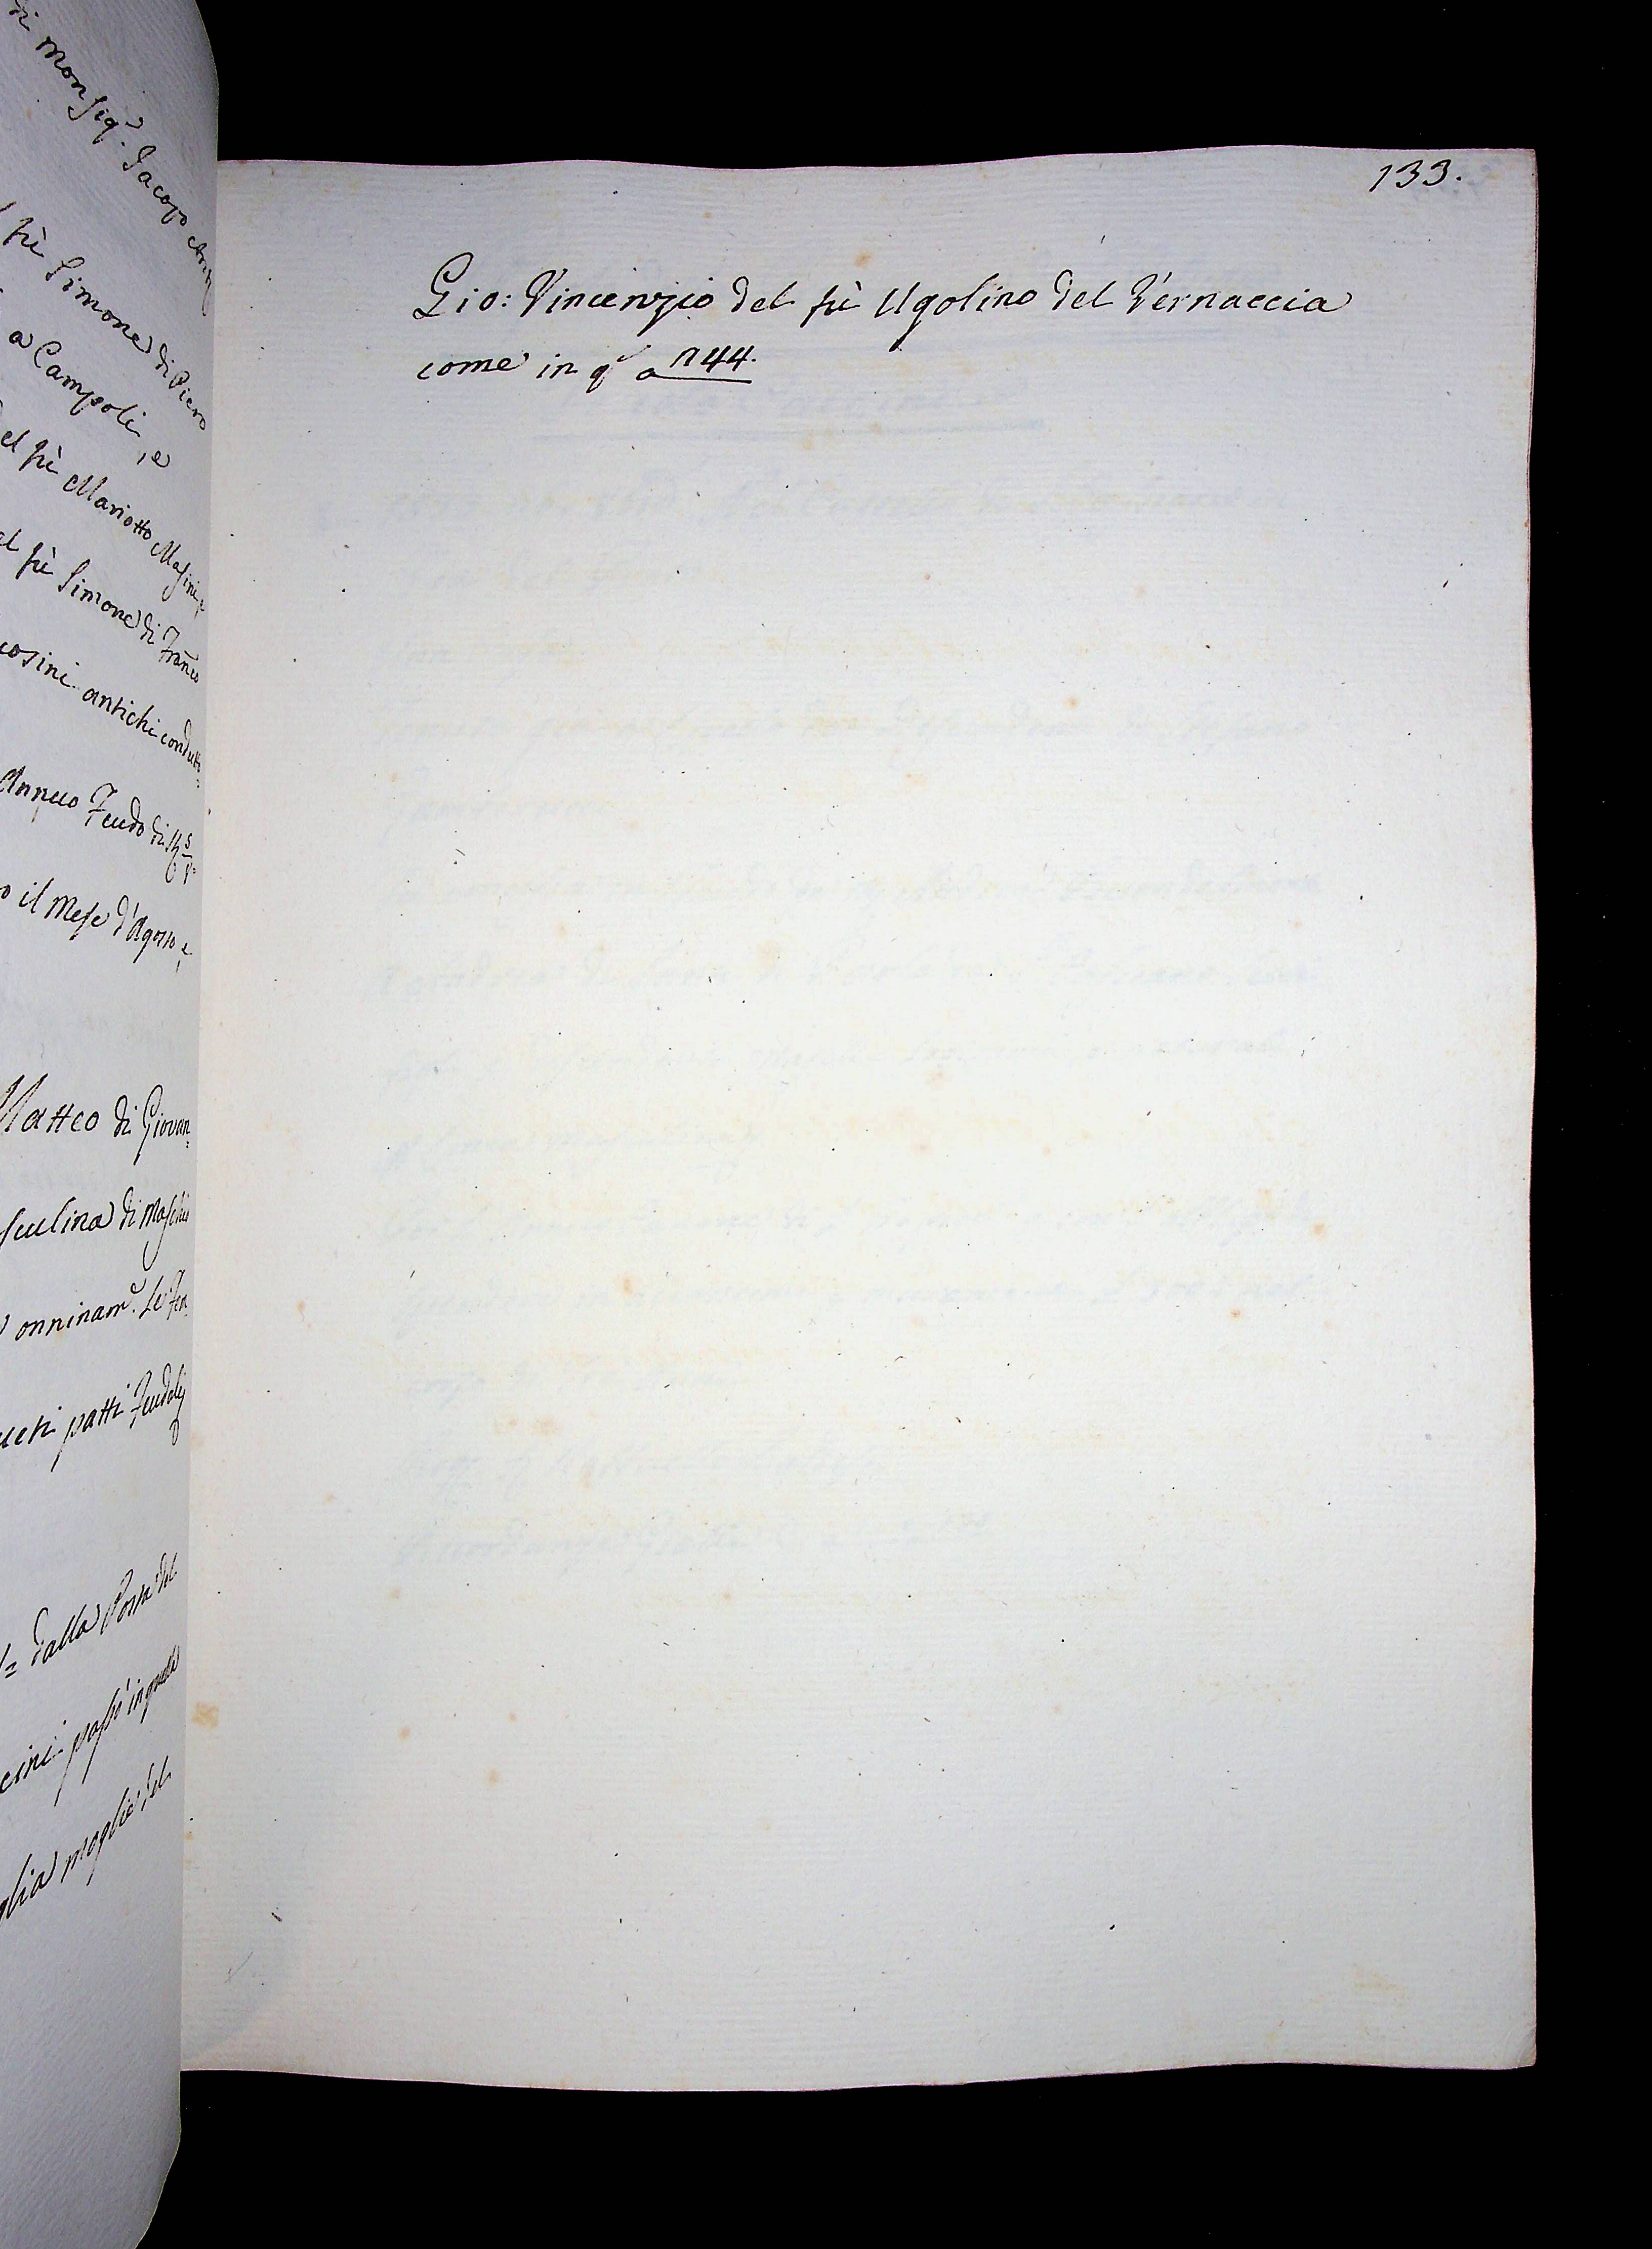 di Monsigr. Jacopo
fù Simone di Piero
a Campoli, e
el fù Mariotto Masini, e
el fù Simone di Franco
cosini antichi condutto=
Annuo Feudo di
o il Mese d'Agosto, e
Matteo di Giovan=
sculina di Maschio
onninam.e
patti Feudali
dalla Posta del
cini passò in quella
glia moglie del
133.
Gio: Vincenzio del fù Ugolino del Vernaccia
come in q.o a n 44.